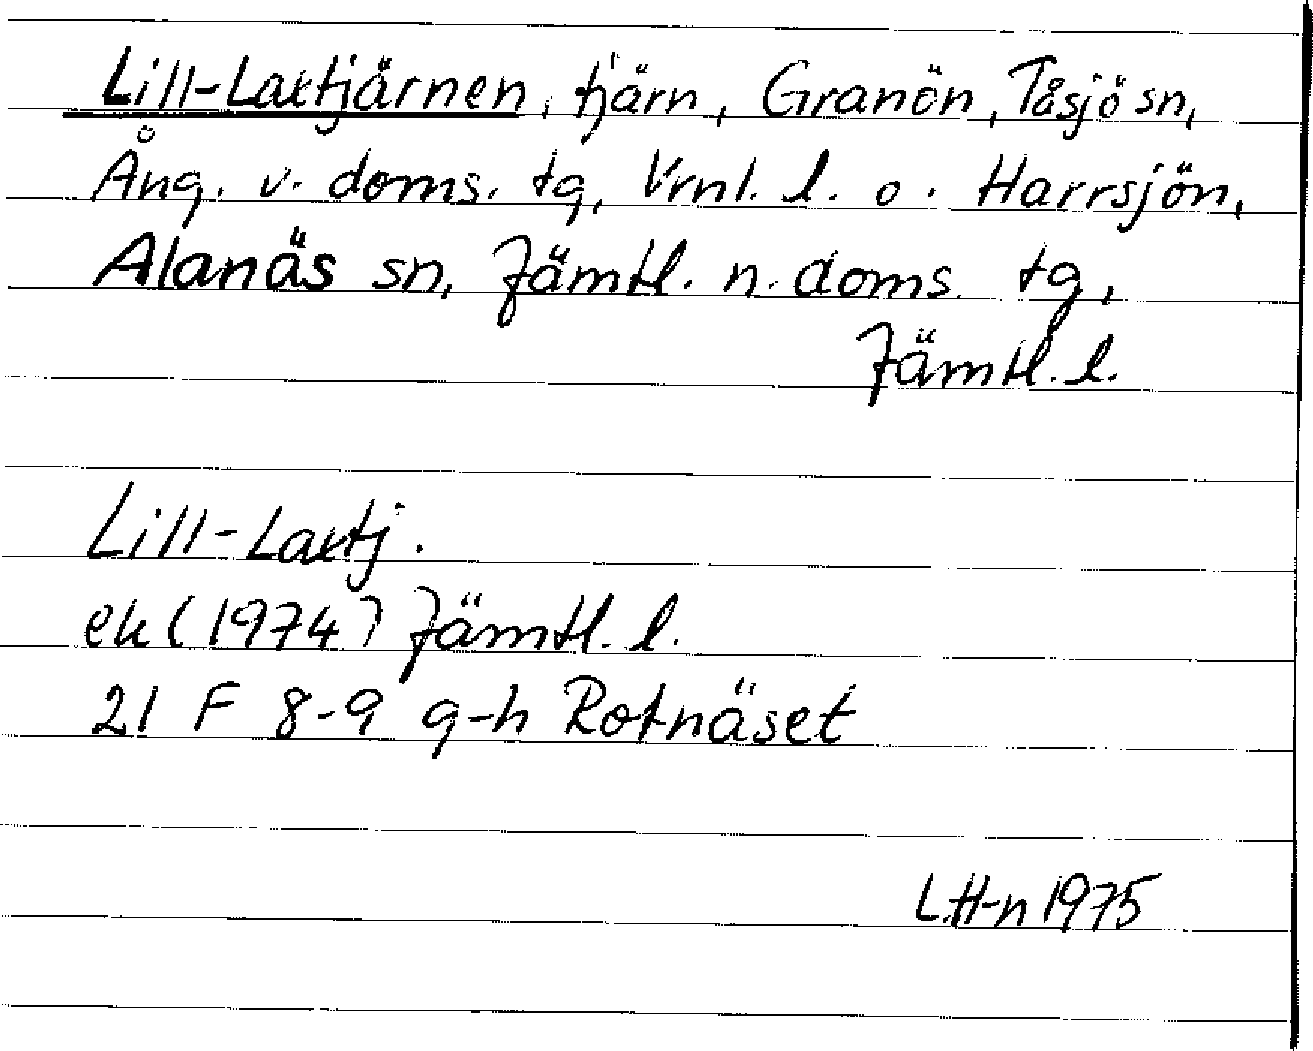 Lill-Laxtjärnen, tjärn, Granön, Tåsjö sn,
Ång. v. doms. tg, Vrnl. l. o. Harrsjön,
Alanäs sn, Jämtl. n. doms. tg,
Jämtl. l.
Lill-Laxtj.
ek (1974) Jämtl. l.
21 F 8-9 g-h Rotnäset
L.H-n 1975